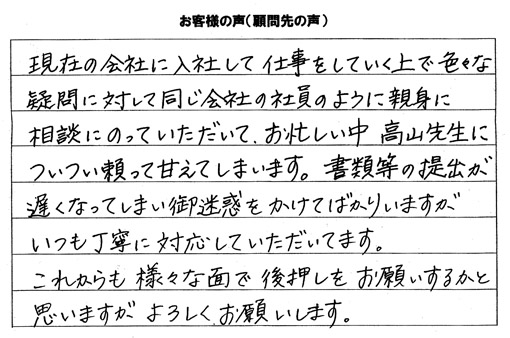 お客様の声（顧問先の声）
現在の会社に入社して仕事をしていく上で色々な
疑問に対して同じ会社の社員のように親身に
相談にのっていただいて、お忙しい中 高山先生に
ついつい頼って甘えてしまいます。書類等の提出が
遅くなってしまい御迷惑をかけてばかりいますが
いつも丁寧に対応していただいてます。
これからも 様々な面で 後押しを お願いするかと
思いますが よろしく お願いします。